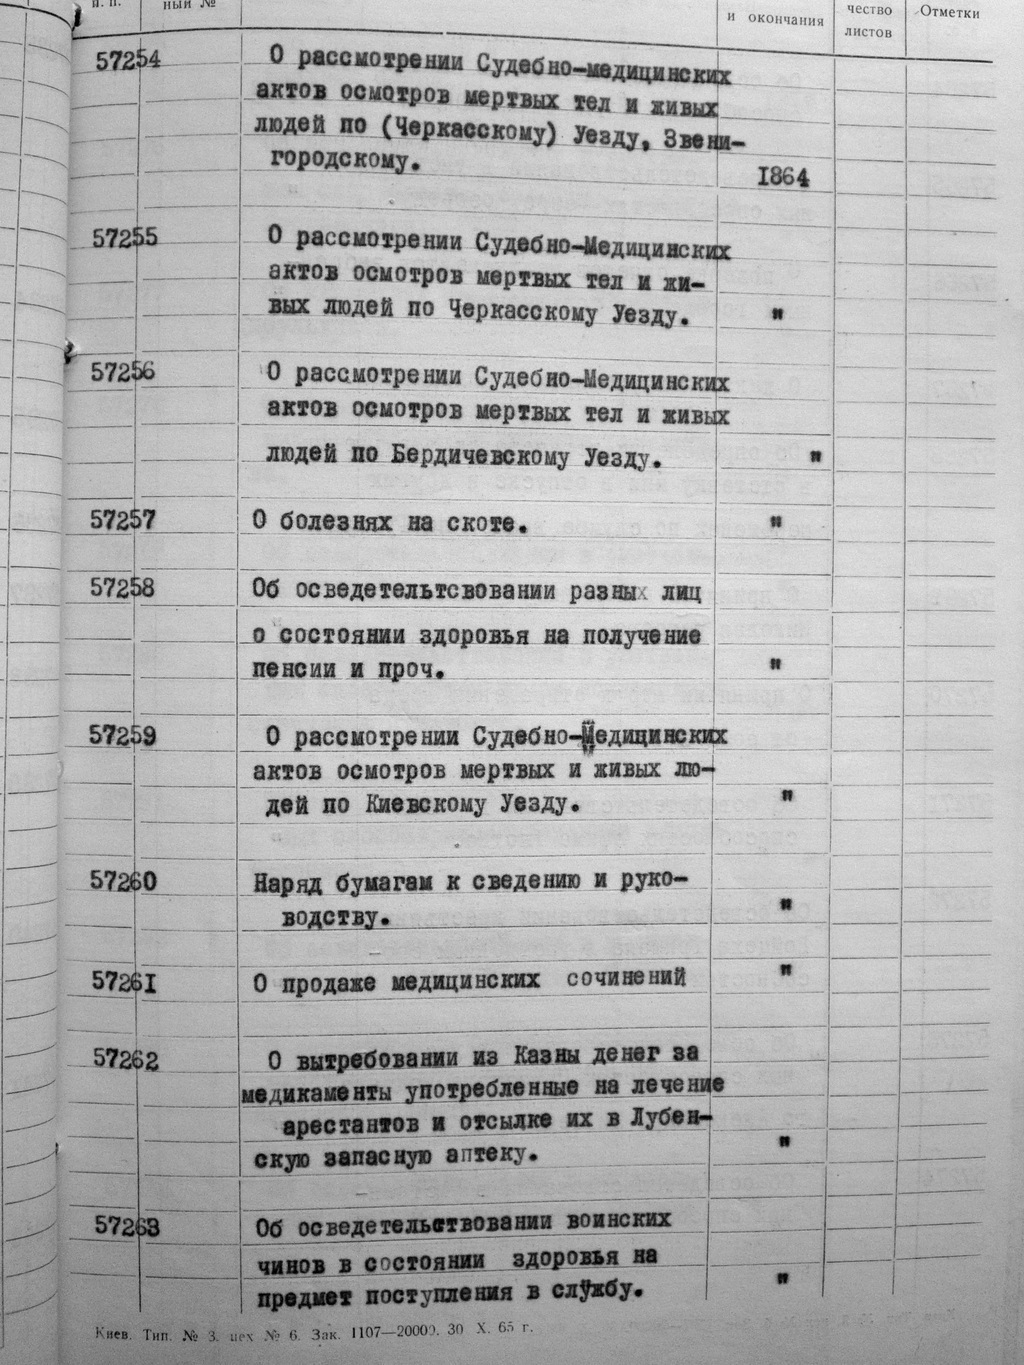 п. п.
ный №
и окончания
чество
листов
Отметки
57254
О рассмотрении Судебно-медицинских
актов осмотров мертвых тел и живых
людей по (Черкасскому) Уезду, Звени-
городскому.
1864
57255
О рассмотрении Судебно-Медицинских
актов осмотров мертвых тел и жи-
вых людей по Черкасскому Уезду. "
57256
О рассмотрении Судебно-Медицинских
актов осмотров мертвых тел и живых
людей по Бердичевскому Уезду. "
57257
О болезнях на скоте. "
57258
Об осведетельтсвовании разных лиц
о состоянии здоровья на получение
пенсии и проч. "
57259
О рассмотрении Судебно-Медицинских
актов осмотров мертвых и живых лю-
дей по Киевскому Уезду. "
57260
Наряд бумагам к сведению и руко-
водству. "
57261
О продаже медицинских сочинений "
57262
О вытребовании из Казны денег за
медикаменты употребленные на лечение
арестантов и отсылке их в Лубен-
скую запасную аптеку. "
57263
Об осведетельствовании воинских
чинов в состоянии здоровья на
предмет поступления в службу. "
Киев. Тип. № 3. цех № 6. Зак. 1107—20000. 30 X. 65 г.